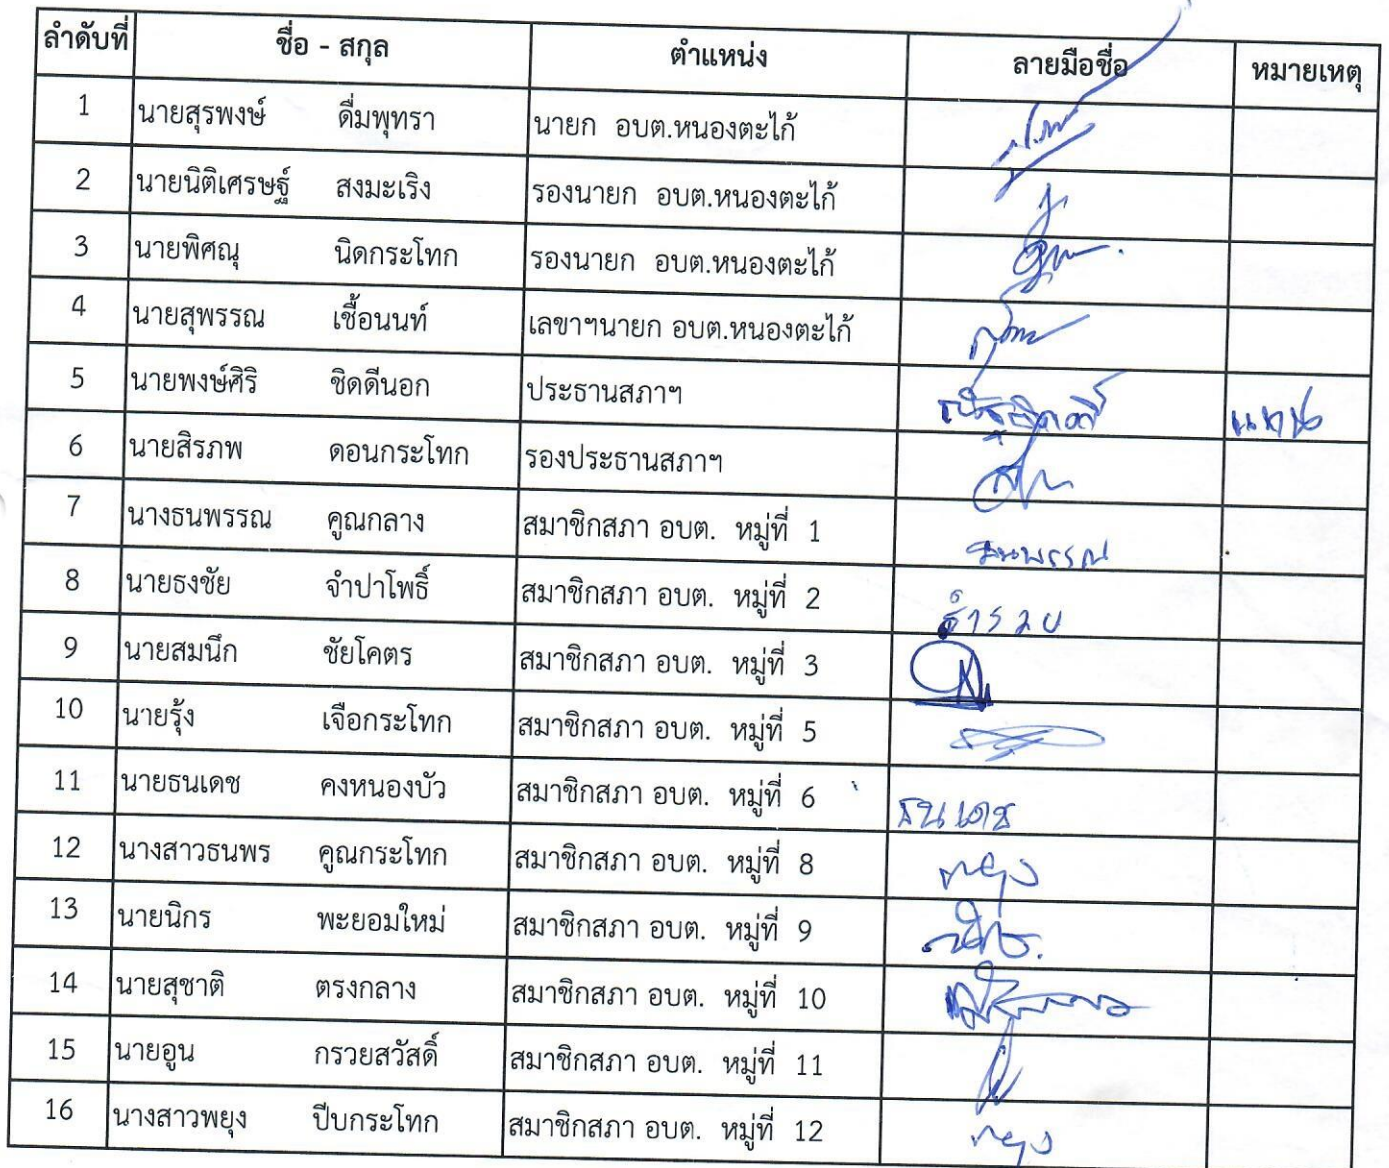 ลำดับที่ ชื่อ - สกุล ตำแหน่ง ลายมือชื่อ หมายเหตุ
1 นายสุรพงษ์ ดื่มพุทรา นายก อบต.หนองตะไก้
2 นายนิติเศรษฐ์ สงมะเริง รองนายก อบต.หนองตะไก้
3 นายพิศณุ นิดกระโทก รองนายก อบต.หนองตะไก้
4 นายสุพรรณ เชื้อนนท์ เลขาฯนายก อบต.หนองตะไก้
5 นายพงษ์ศิริ ชิดดีนอก ประธานสภาฯ
6 นายสิรภพ ดอนกระโทก รองประธานสภาฯ
7 นางธนพรรณ คูณกลาง สมาชิกสภา อบต. หมู่ที่ 1 ธนพรรณ
8 นายธงชัย จำปาโพธิ์ สมาชิกสภา อบต. หมู่ที่ 2
9 นายสมนึก ชัยโคตร สมาชิกสภา อบต. หมู่ที่ 3
10 นายรุ้ง เจือกระโทก สมาชิกสภา อบต. หมู่ที่ 5
11 นายธนเดช คงหนองบัว สมาชิกสภา อบต. หมู่ที่ 6 ธนเดช
12 นางสาวธนพร คูณกระโทก สมาชิกสภา อบต. หมู่ที่ 8
13 นายนิกร พะยอมใหม่ สมาชิกสภา อบต. หมู่ที่ 9
14 นายสุชาติ ตรงกลาง สมาชิกสภา อบต. หมู่ที่ 10
15 นายอูน กรวยสวัสดิ์ สมาชิกสภา อบต. หมู่ที่ 11
16 นางสาวพยุง ปีบกระโทก สมาชิกสภา อบต. หมู่ที่ 12